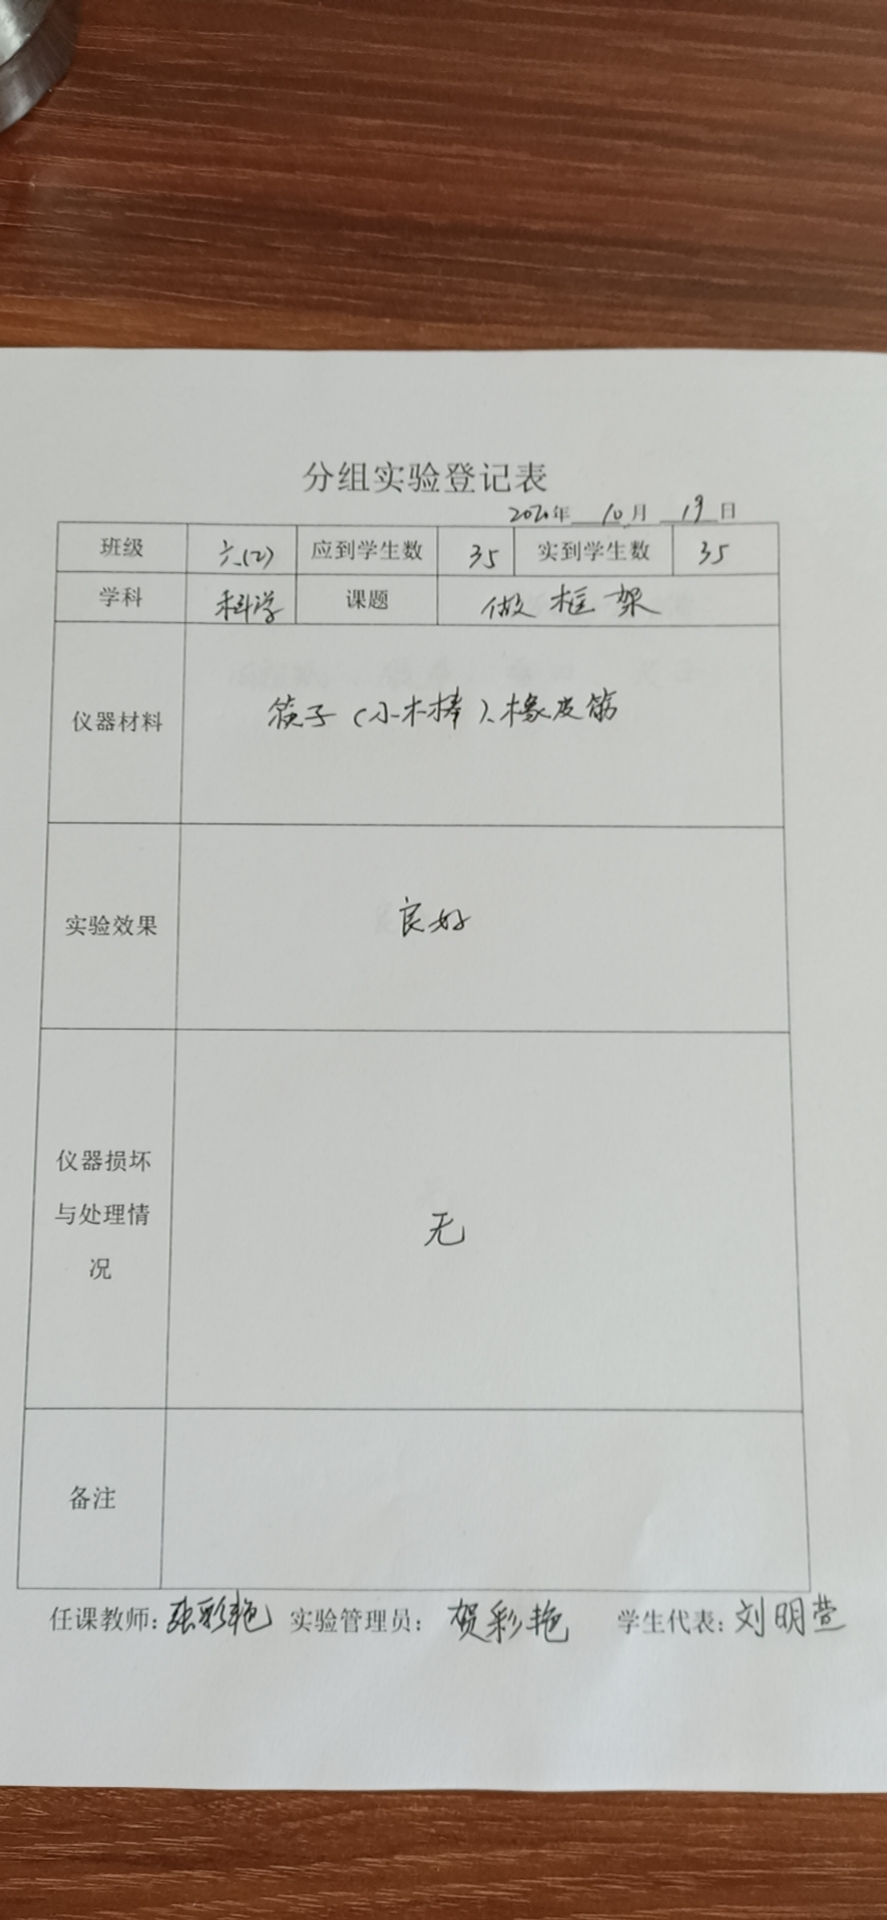 分组实验登记表
2020年 10月 19日
班级 六(2) 应到学生数 35 实到学生数 35
学科 科学 课题 做框架
仪器材料 筷子(小木棒)、橡皮筋
实验效果 良好
仪器损坏
与处理情
况
无
备注
任课教师:张彩艳 实验管理员:贺彩艳 学生代表:刘明萱